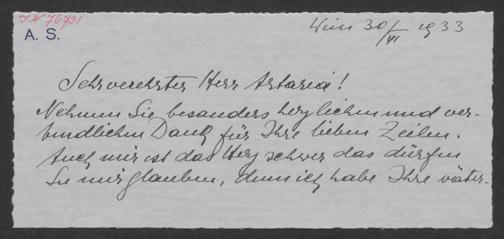 IN 76791
A. S.
Wien 30/VI 1933
Sehrverehrter Herr Artaria!
Nehmen Sie besonders herzlichen und ver-
bindlichen Dank für Ihre lieben Zeilen.
Auch mir ist das Herz schwer das dürfen
Sie mir glauben, denn ich habe Ihre väter-